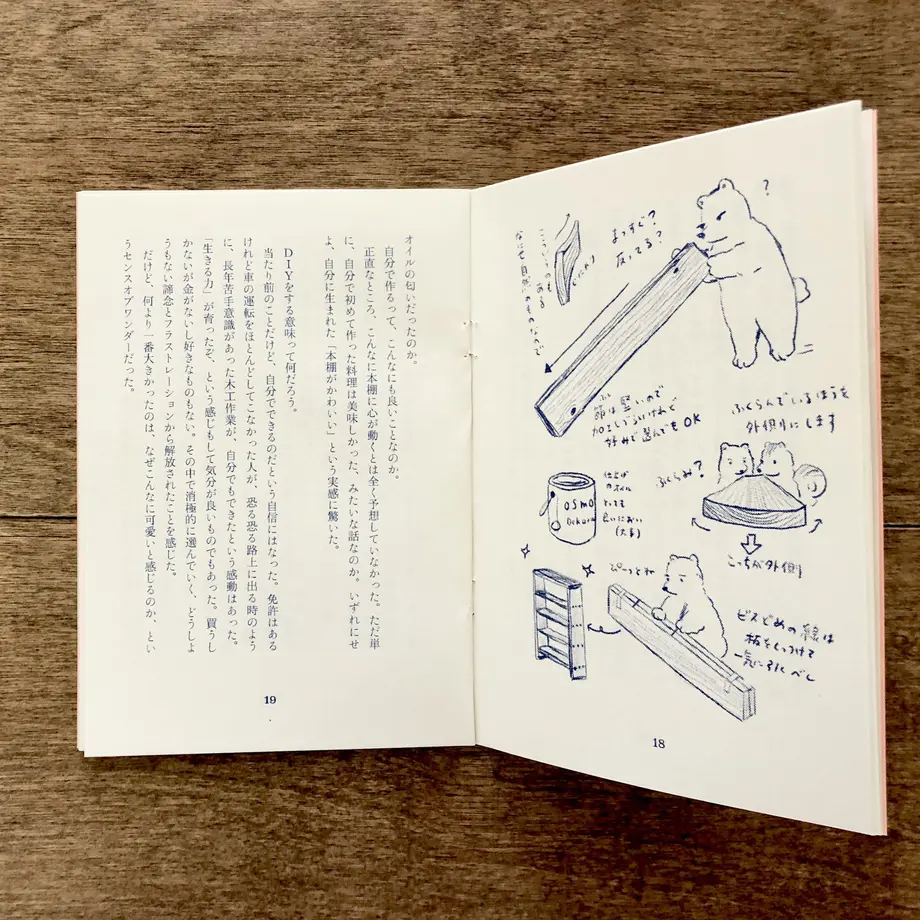 ?
まっすぐ?
反いてる?
こういうのもある
なにせ自然のものなので
ふし
節は堅いので
加工しづらいけれど
好みで選んでもOK
ふくらんでいるほうを
外側にします
ふくらみ?
こっちが外側
仕上げ
のオイル
とても
良いにおい
(大事)
OSMO
ぴーっとね
ビスどめの線は
板をくっつけて
一気に引くべし
18
オイルの匂いだったのか。
自分で作るって、こんなにも良いことなのか。
正直なところ、こんなに本棚に心が動くとは全く予想していなかった。ただ単
に、自分で初めて作った料理は美味しかった、みたいな話なのか。いずれにせ
よ、自分に生まれた「本棚がかわいい」という実感に驚いた。
DIYをする意味って何だろう。
当たり前のことだけど、自分でできるのだという自信にはなった。免許はある
けれど車の運転をほとんどしてこなかった人が、恐る恐る路上に出る時のよう
に、長年苦手意識があった木工作業が、自分でもできたという感動はあった。
「生きる力」が育ったぞ、という感じもして気分が良いものでもあった。買うし
かないが金がないし好きなものもない。その中で消極的に選んでいく、どうしよ
うもない諦念とフラストレーションから解放されたことを感じた。
だけど、何より一番大きかったのは、なぜこんなに可愛いと感じるのか、とい
うセンスオブワンダーだった。
19